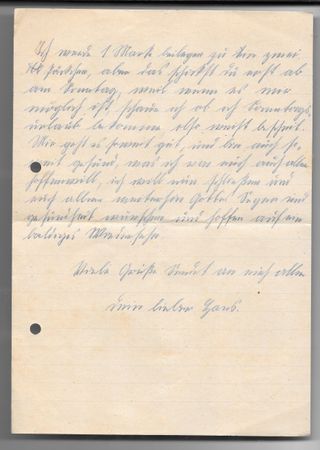 Ich werde 1 Mark beilegen zu den zwei
Päckchen, aber das schickst du erst ab
am Sonntag, weil wenn es mir
möglich ist, schaue ich ob ich Sonntags
urlaub bekomme also weißt bescheid.
Mir geht es soweit gut, und bin auch so
weit gesund, was ich von euch auch allen
hoffen will, ich will nun schließen und
euch allen weiterhin Gottes Segen und
gesundheit wünschen und hoffen auf ein
baldiges Wiedersehn.
Viele Grüße Sendet an euch allen
dein lieber Hans.